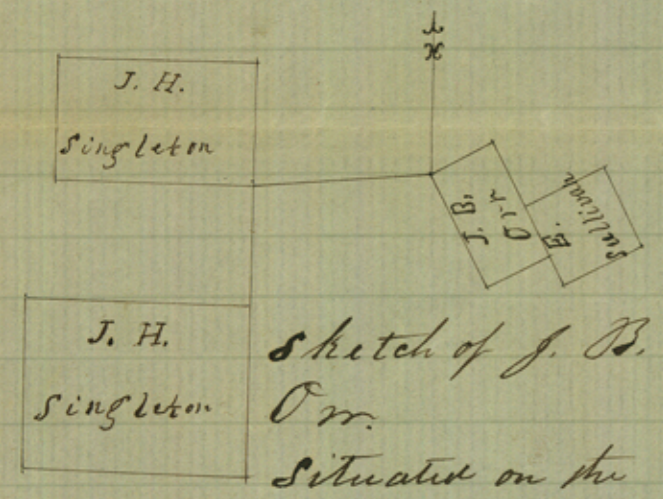 J. H.
Singleton
J. B.
Orr
E.
Sullivan
J. H.
Singleton
Sketch of J. B.
Orr.
Situated on the